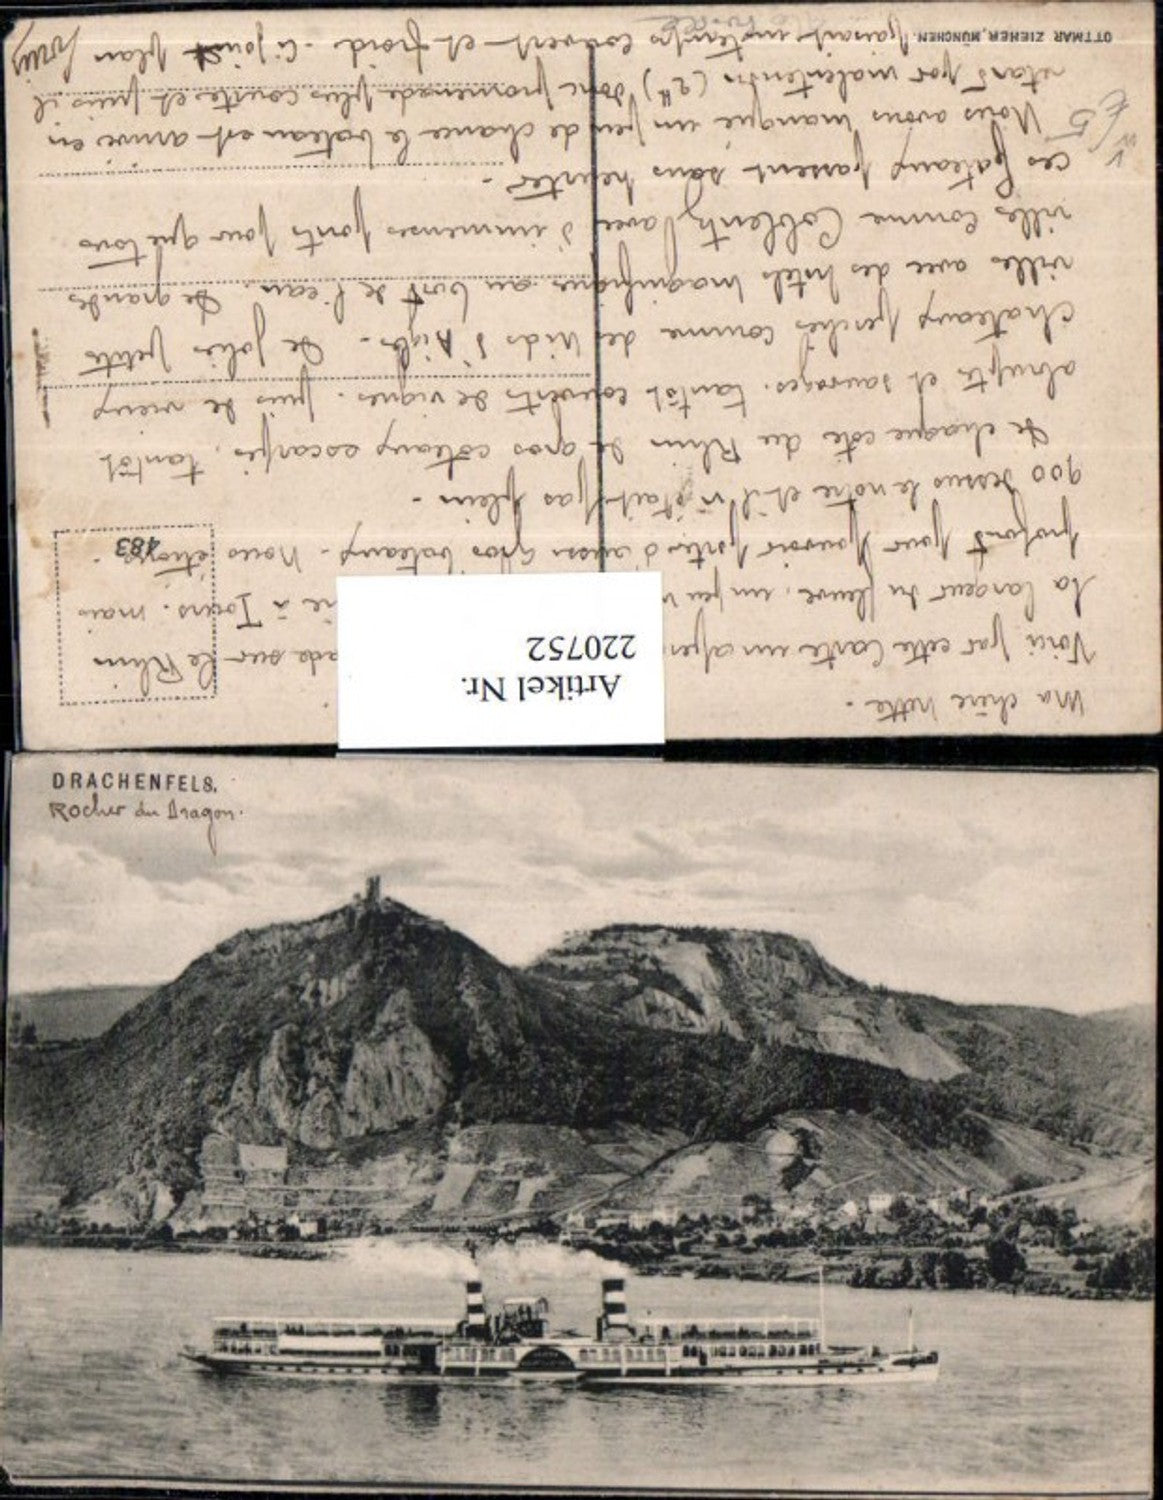 Ma chère Nette.
Voici par cette Carte un aper ade sur le Rhin
la largeur du fleuve, un peu re à Tours. mais
profond pour pouvoir porter d'aussi gros bateaux. Nous étions
900 dessus le notre et il n'était pas plein.
De chaque côté du Rhin de gros coteaux escarpés, tantôt
abrupts et sauvages, tantôt couverts de vignes. puis de vieux
chateaux perchés comme des Nids d'Aigles. De jolies petites
villes avec des hotels magnifiques au bord de l'eau. De grandes
villes comme Coblentz avec d'immenses ponts pour que tous
ces bateaux passent sans heurter.
Nous avons manqué un peu de chance le bateau est arrivé en
retard par malentendu (2h) donc promenade plus courte et puis il
faisait un temps couvert et froid. Ci joint plan
OTTMAR ZIEHER, MÜNCHEN
483
Artikel Nr.
220752
DRACHENFELS.
Rocher du Dragon.